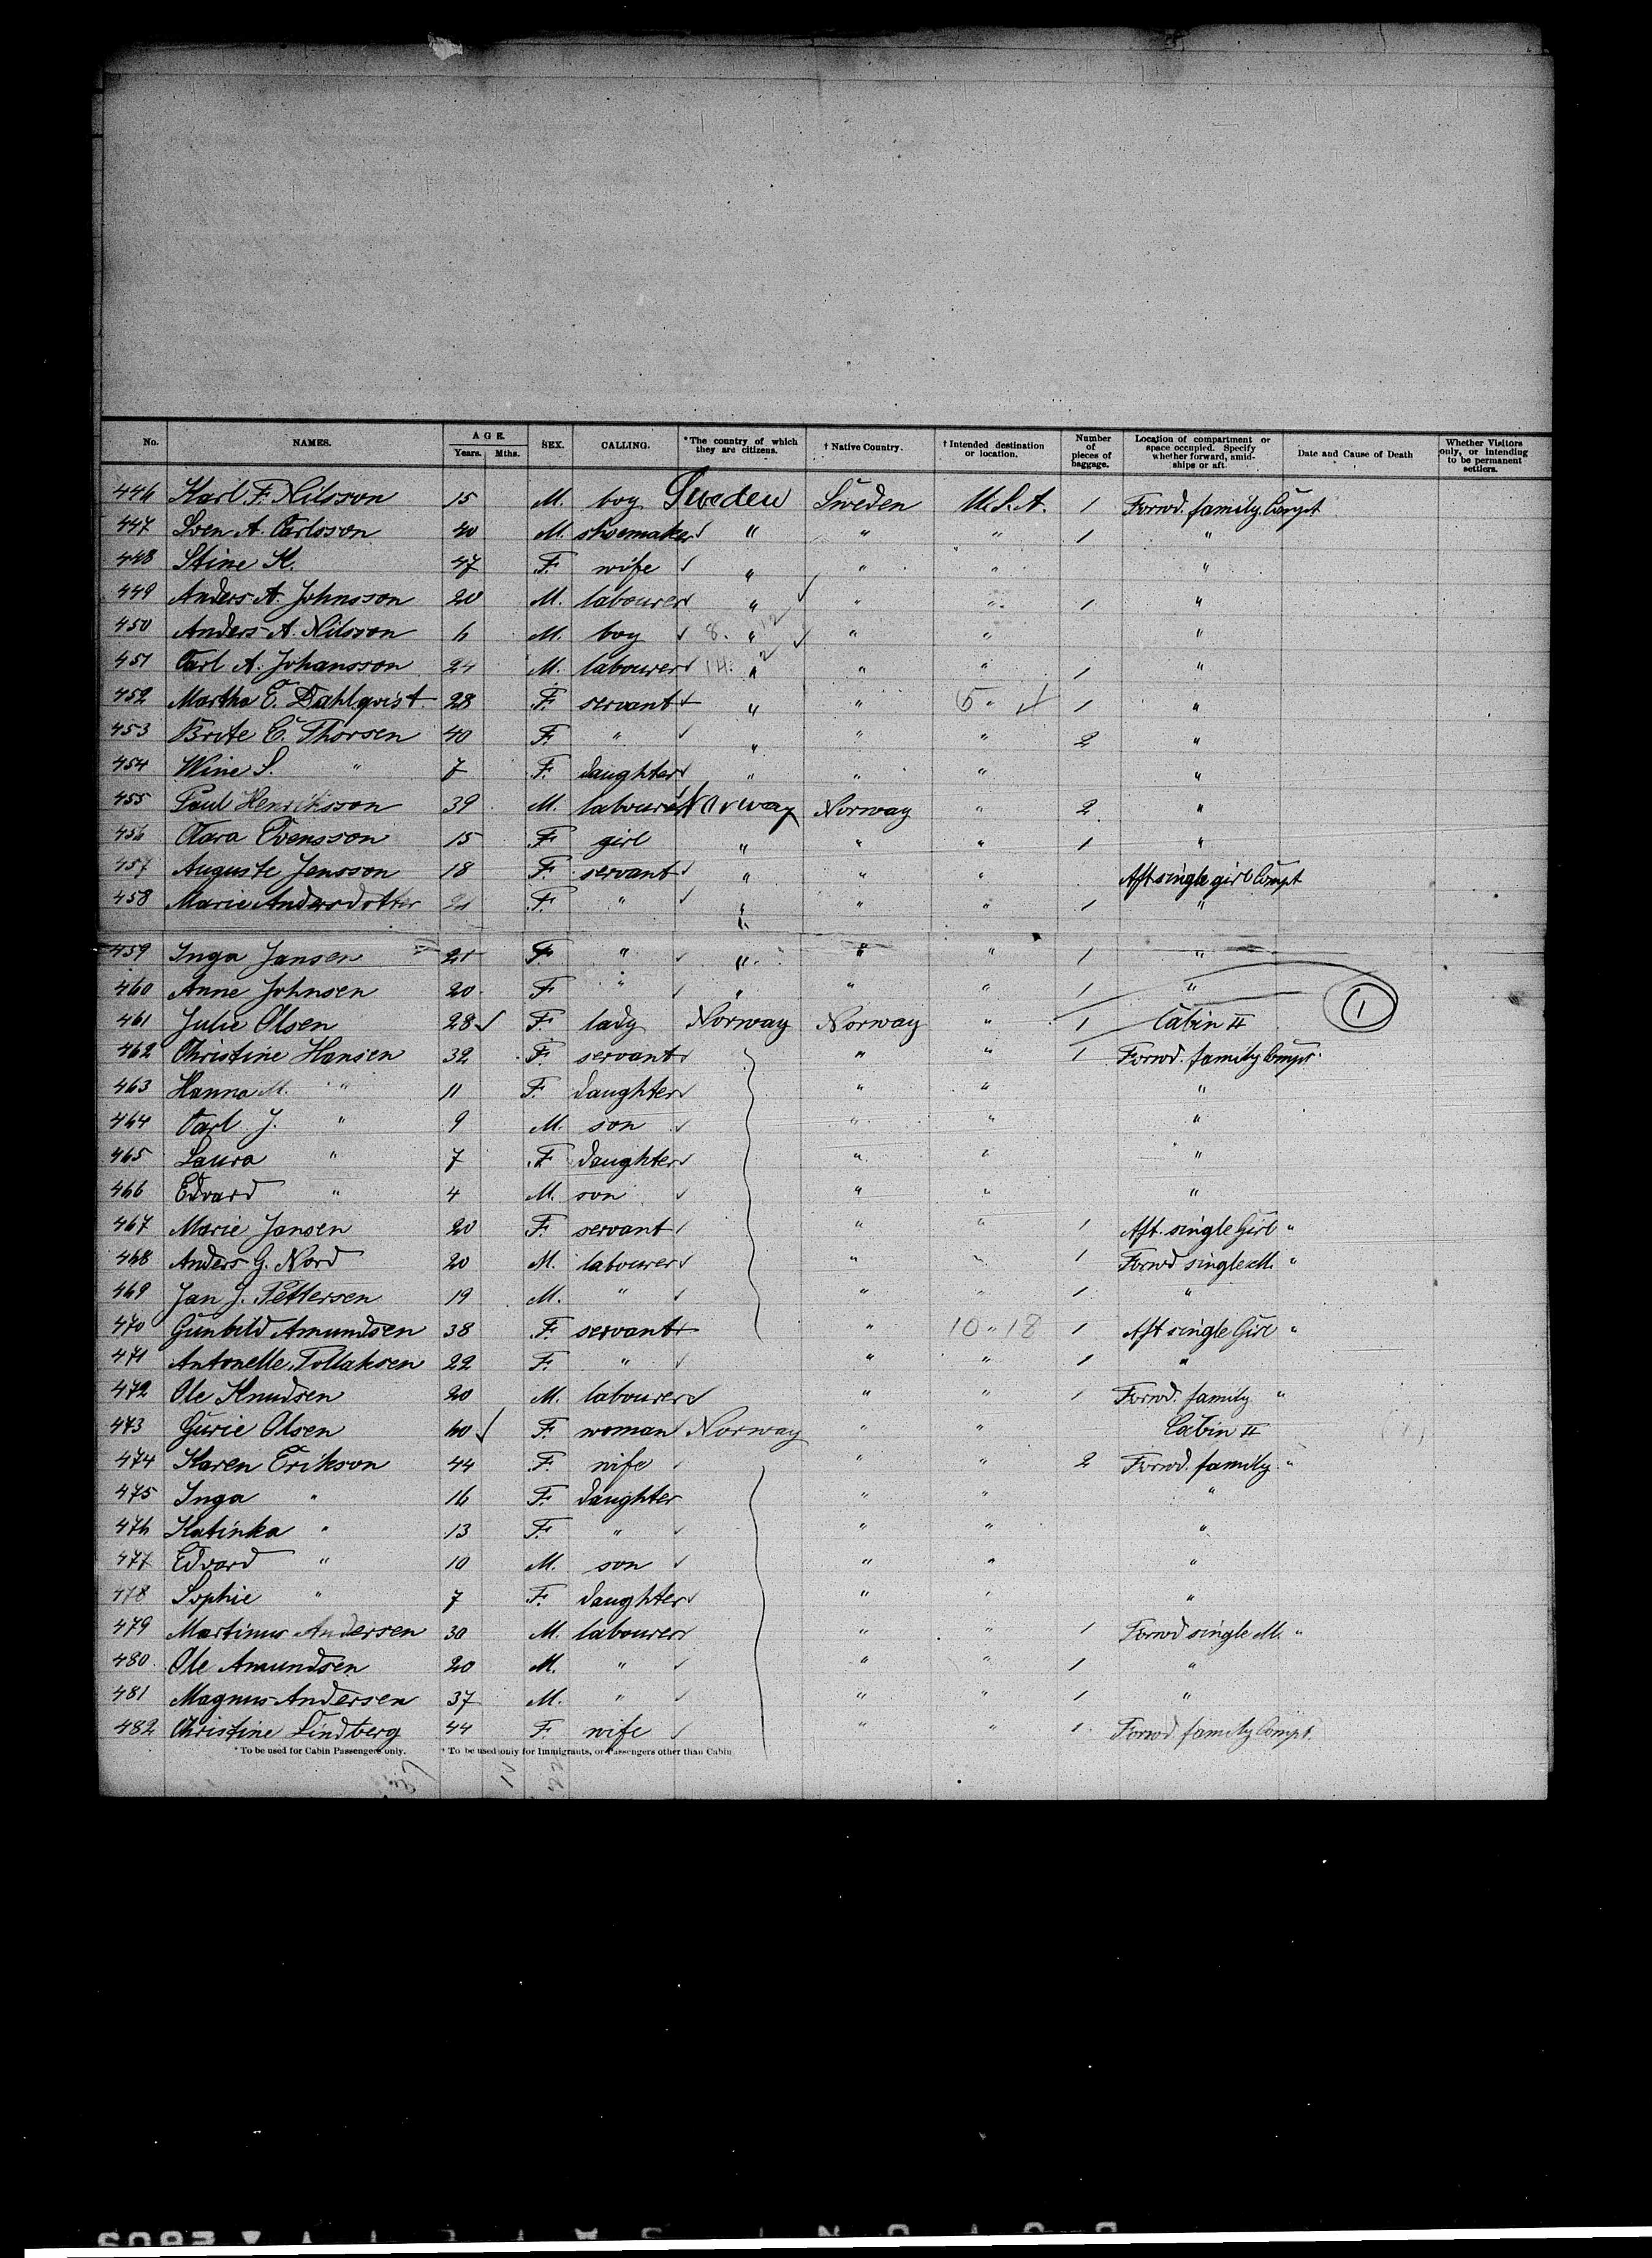 No. NAMES. AGE. Years. Mths. SEX. CALLING. *The country of which they are citizens. † Native Country. † Intended destination or location. Number of pieces of baggage. Location of compartment or space occupied. Specify whether forward, amidships or aft. Date and Cause of Death Whether Visitors only, or intending to be permanent settlers.
446 Karl F. Nilsson 15 M. boy Sweden Sweden U.S.A. 1 Forwd. family Compt
447 Sven A. Carlsson 40 M. shoemaker " " " 1 "
448 Stine K. 47 F. wife " " " "
449 Anders A. Johnsson 20 M. labourer " " " 1 "
450 Anders A. Nilsson 6 M. boy 8. " 12 " " "
451 Carl A. Johansson 24 M. labourer 14. " 2 " " 1 "
452 Martha E. Dahlqvist 28 F. servant " " 5 " 1 "
453 Brite C. Thorsen 40 F. " " " " 2 "
454 Wine S. " 7 F. daughter " " " "
455 Paul Henriksson 39 M. labourer Norway Norway " 2 "
456 Clara Evensson 15 F girl " " " 1 "
457 Auguste Jensson 18 F servant " " " Aft single girl Compt
458 Marie Andersdotter F. " " " " 1 "
459 Inga Jansen 21 F. " " " " 1 "
460 Anne Johnsen 20 F " " " " 1 "
461 Julie Olsen 28 F. lady Norway Norway " 1 Cabin II 1
462 Christine Hansen 32 F. servant " " 1 Forwd. family Compt.
463 Hanna M. " 11 F. daughter " " "
464 Carl J. " 9 M. son " " "
465 Laura " 7 F daughter " " "
466 Edvard " 4 M. son " " "
467 Marie Jansen 20 F. servant " " 1 Aft. single Girl "
468 Anders G. Nord 20 M. labourer " " 1 Forwd single M. "
469 Jan J. Pettersen 19 M. " " " 1 "
470 Gunhild Amundsen 38 F. servant " 10 " 18 1 Aft single Girl "
471 Antonette Tollaksen 22 F. " " " 1 "
472 Ole Knudsen 20 M. labourer " " 1 Forwd. family "
473 Gurie Olsen 40 F woman Norway " " Cabin II
474 Karen Erikson 44 F. wife " " 2 Forwd. family "
475 Inga " 16 F. daughter " " "
476 Katinka " 13 F. " " " "
477 Edvard " 10 M. son " " "
478 Sophie " 7 F. daughter " " "
479 Martinus Andersen 30 M. labourer " " 1 Forwd single M. "
480 Ole Amundsen 20 M. " " " 1 "
481 Magnus Andersen 37 M. " " " 1 "
482 Christine Lindberg 44 F. wife " " 1 Forwd family Compt.
* To be used for Cabin Passengers only. † To be used only for Immigrants, or Passengers other than Cabin